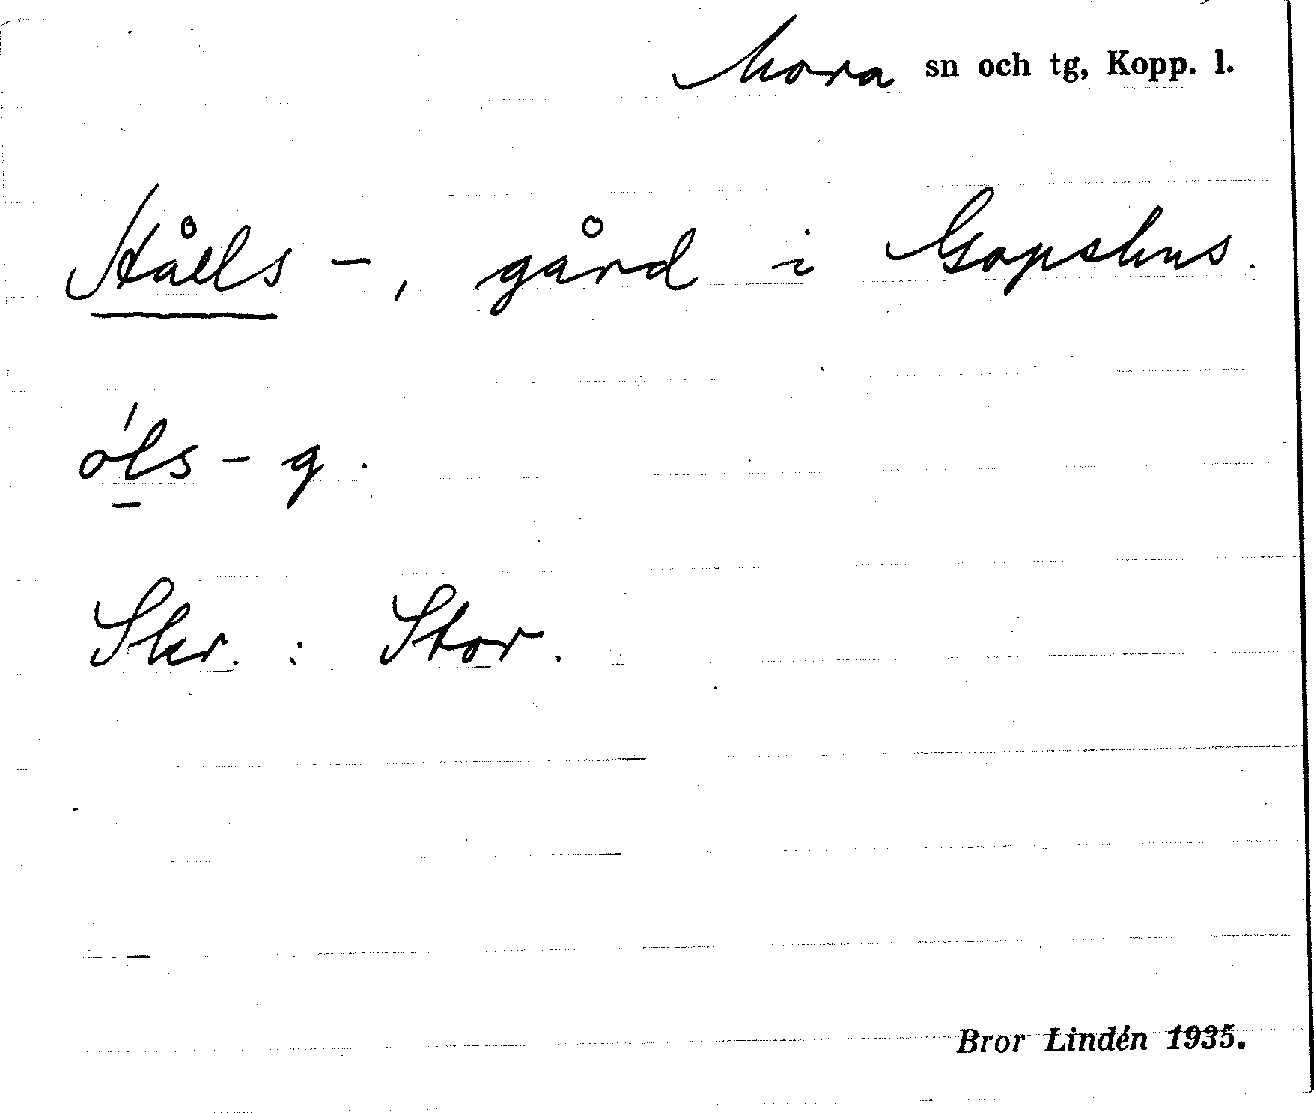 Mora sn och tg, Kopp. l.
Hålls -, gård i Gopshus.
óls - g.
Skr. : Stor.
Bror Lindén 1935.